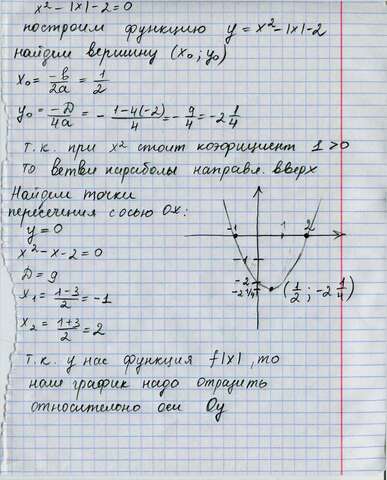 x² - |x| - 2 = 0
построим функцию y = x² - |x| - 2
найдии вершину (x₀; y₀)
x₀ = -b/2a = 1/2
y₀ = -D/4a = - 1-4(-2)/4 = - 9/4 = -2 1/4
т.к. при x² стоит коэфициент 1>0
то ветви параболы направл. вверх
Найдии точки
пересечения с осью Ox:
y = 0
x² - x - 2 = 0
D = 9
x₁ = 1-3/2 = -1
x₂ = 1+3/2 = 2
-1
1
2
-1
-2
-2 1/4
(1/2; -2 1/4)
т.к. у нас функция f|x|, то
наш график надо отразить
относительно оси Oy